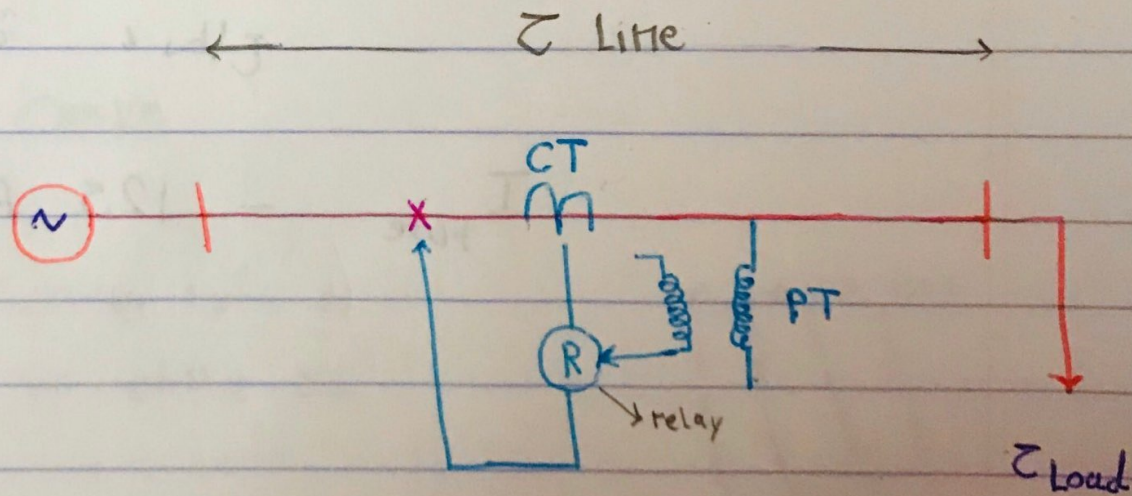 Z Line
CT
~
X
PT
R
relay
Z Load